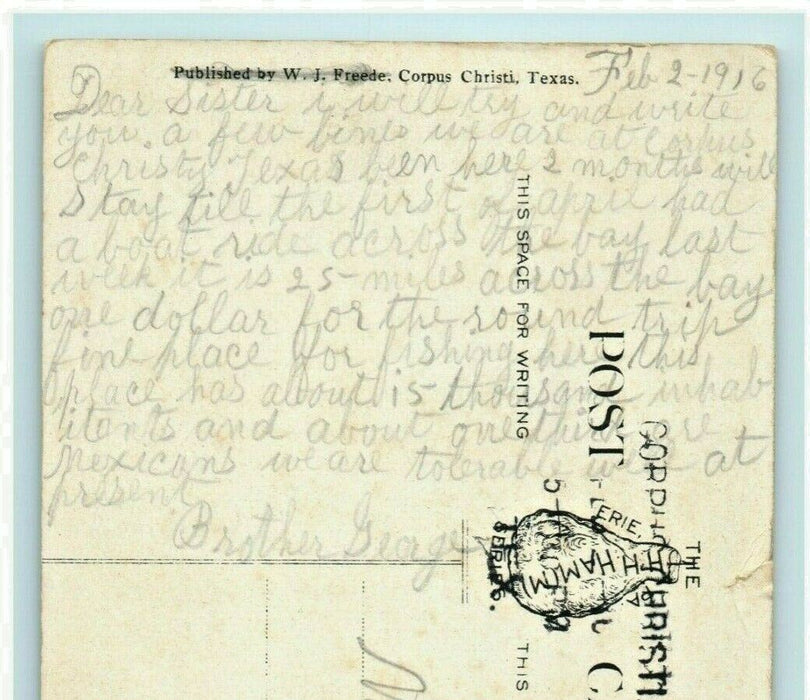 Published by W. J. Freede, Corpus Christi, Texas.
Feb 2-1916
Dear Sister i will try and write
you a few lines we are at Corpus
Christy Texas been here 2 months will
stay till the first of april had
a boat ride across the bay last
week it is 25 miles across the bay
one dollar for the round trip
fine place for fishing here this
place has about 15 thousand inhab
itents and about one third are
Mexicans we are tolerable well at
present
Brother George
THIS SPACE FOR WRITING
POST C
THE
ERIE,
HAMM
SERIES.
CORPUS CHRISTI
TEX
5-
THIS